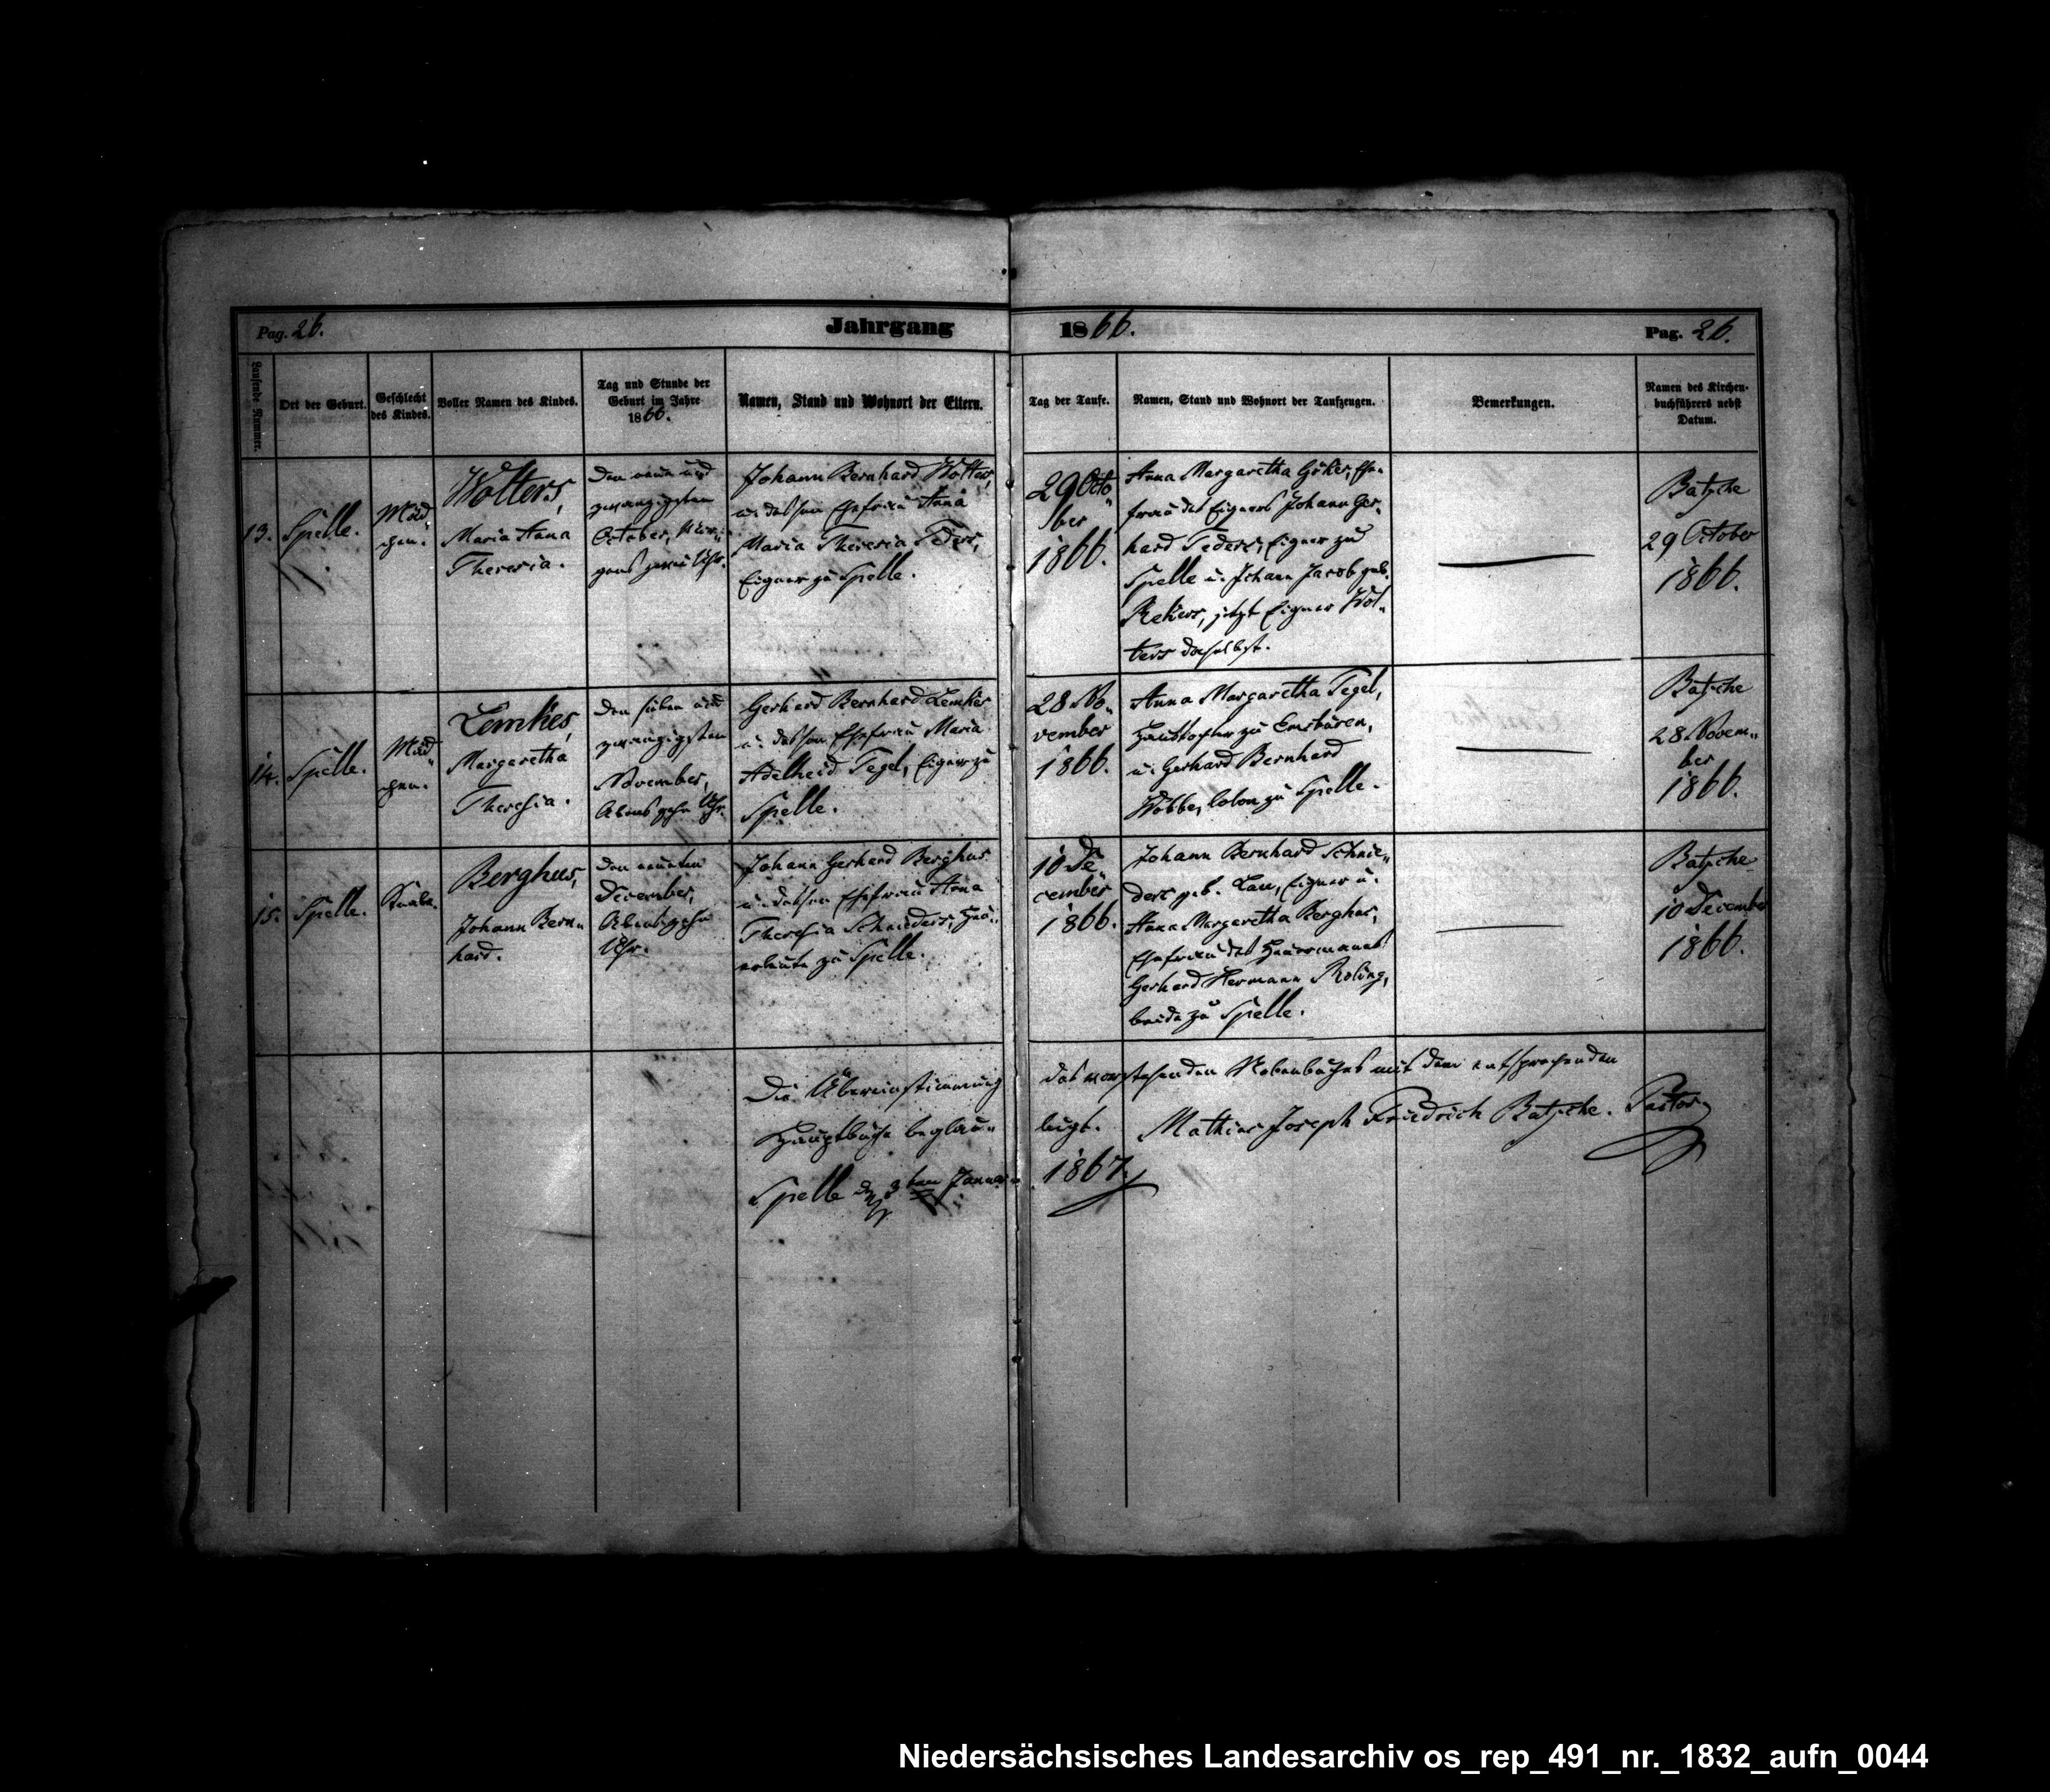 Pag. 26.
Jahrgang 1866.
Pag. 26.
Laufende Nummer.
Ort der Geburt.
Geschlecht
des Kindes.
Voller Namen des Kindes.
Tag und Stunde der
Geburt im Jahre
1866.
Namen, Stand und Wohnort der Eltern.
Tag der Taufe.
Namen, Stand und Wohnort der Taufzeugen.
Bemerkungen.
Namen des Kirchen-
buchführers nebst
Datum.
13.
Spelle.
Mäd-
chen.
Wolters,
Maria Anna
Theresia.
Den neun und
zwanzigsten
October, Mor-
gens zwei Uhr.
Johann Bernhard Wolters,
u. dessen Ehefrau Anna
Maria Theresia Feders,
Eigner zu Spelle.
29 Octo-
ber
1866.
Anna Margaretha Göker, Ehe-
frau des Eigners Johann Ger-
hard Feders, Eigner zu
Spelle u. Johann Jacob geb.
Rekers, jetzt Eigner Wol-
ters daselbst.
Batsche
29 October
1866.
14.
Spelle.
Mäd-
chen.
Lemkes,
Margaretha
Theresia.
Den sieben und
zwanzigsten
November,
Abens zehn Uhr.
Gerhard Bernhard Lemkes
u. dessen Ehefrau Maria
Adelheid Tegel, Eigner zu
Spelle.
28 No-
vember
1866.
Anna Margaretha Tegel,
Haustochter zu Emsbüren,
u. Gerhard Bernhard
Wobbe, Colon zu Spelle.
Batsche
28 Novem-
ber
1866.
15.
Spelle.
Knabe.
Berghus,
Johann Bern-
hard.
Den neunten
December,
Abends zehn
Uhr.
Johann Gerhard Berghus
u. dessen Ehefrau Anna
Theresia Schnieders, Heu-
erleute zu Spelle.
10 De-
cember
1866.
Johann Bernhard Schnie-
ders geb. Lau, Eigner u.
Anna Margaretha Berghus,
Ehefrau des Heuermannes
Gerhard Hermann Roling,
beide zu Spelle.
Batsche
10 December
1866.
Die Übereinstimmung des vorstehenden Nebenbuches mit dem entsprechenden
Hauptbuche beglau- bigt. Mathias Joseph Friedrich Batsche. Pastor
Spelle d. 3ten Januar 1867.
Niedersächsisches Landesarchiv os_rep_491_nr._1832_aufn_0044